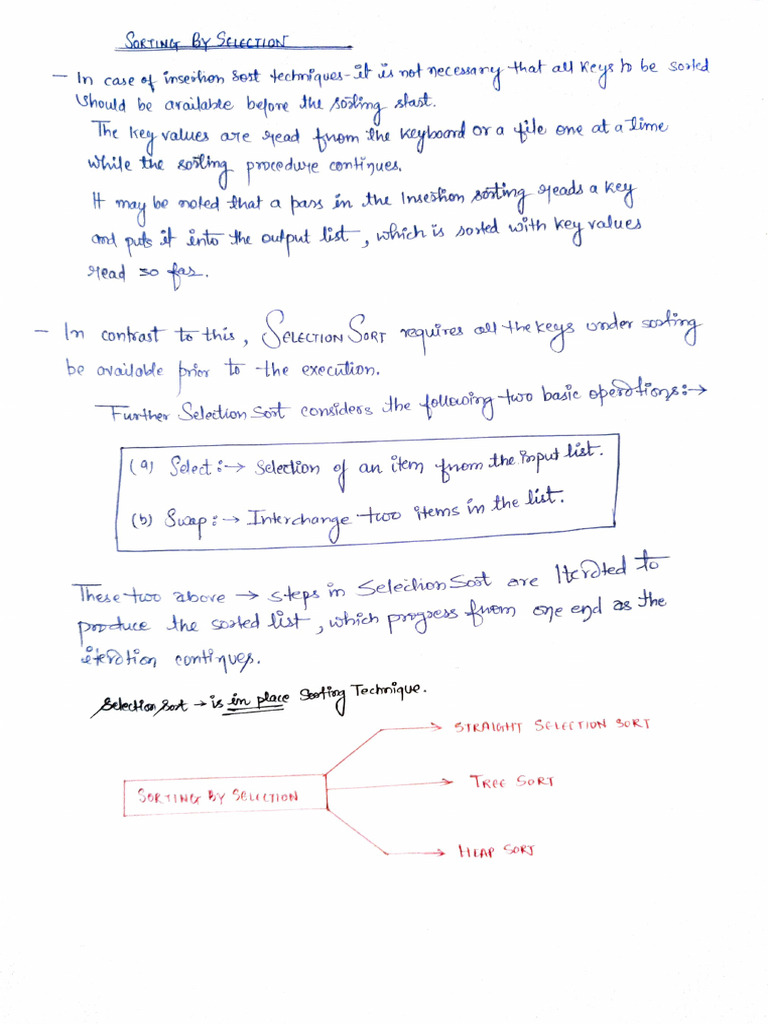 SORTING BY SELECTION
- In case of insertion sort techniques - it is not necessary that all keys to be sorted
should be available before the sorting start.
The key values are read from the keyboard or a file one at a time
while the sorting procedure continues.
It may be noted that a pass in the Insertion sorting reads a key
and puts it into the output list, which is sorted with key values
read so far.
- In contrast to this, SELECTION SORT requires all the keys under sorting
be available prior to the execution.
Further Selection Sort considers the following two basic operations:→
(a) Select:→ Selection of an item from the input list.
(b) Swap:→ Interchange two items in the list.
These two above → steps in Selection Sort are Iterated to
produce the sorted list, which progress from one end as the
iteration continues.
Selection Sort → is in place Sorting Technique.
STRAIGHT SELECTION SORT
TREE SORT
SORTING BY SELECTION
HEAP SORT